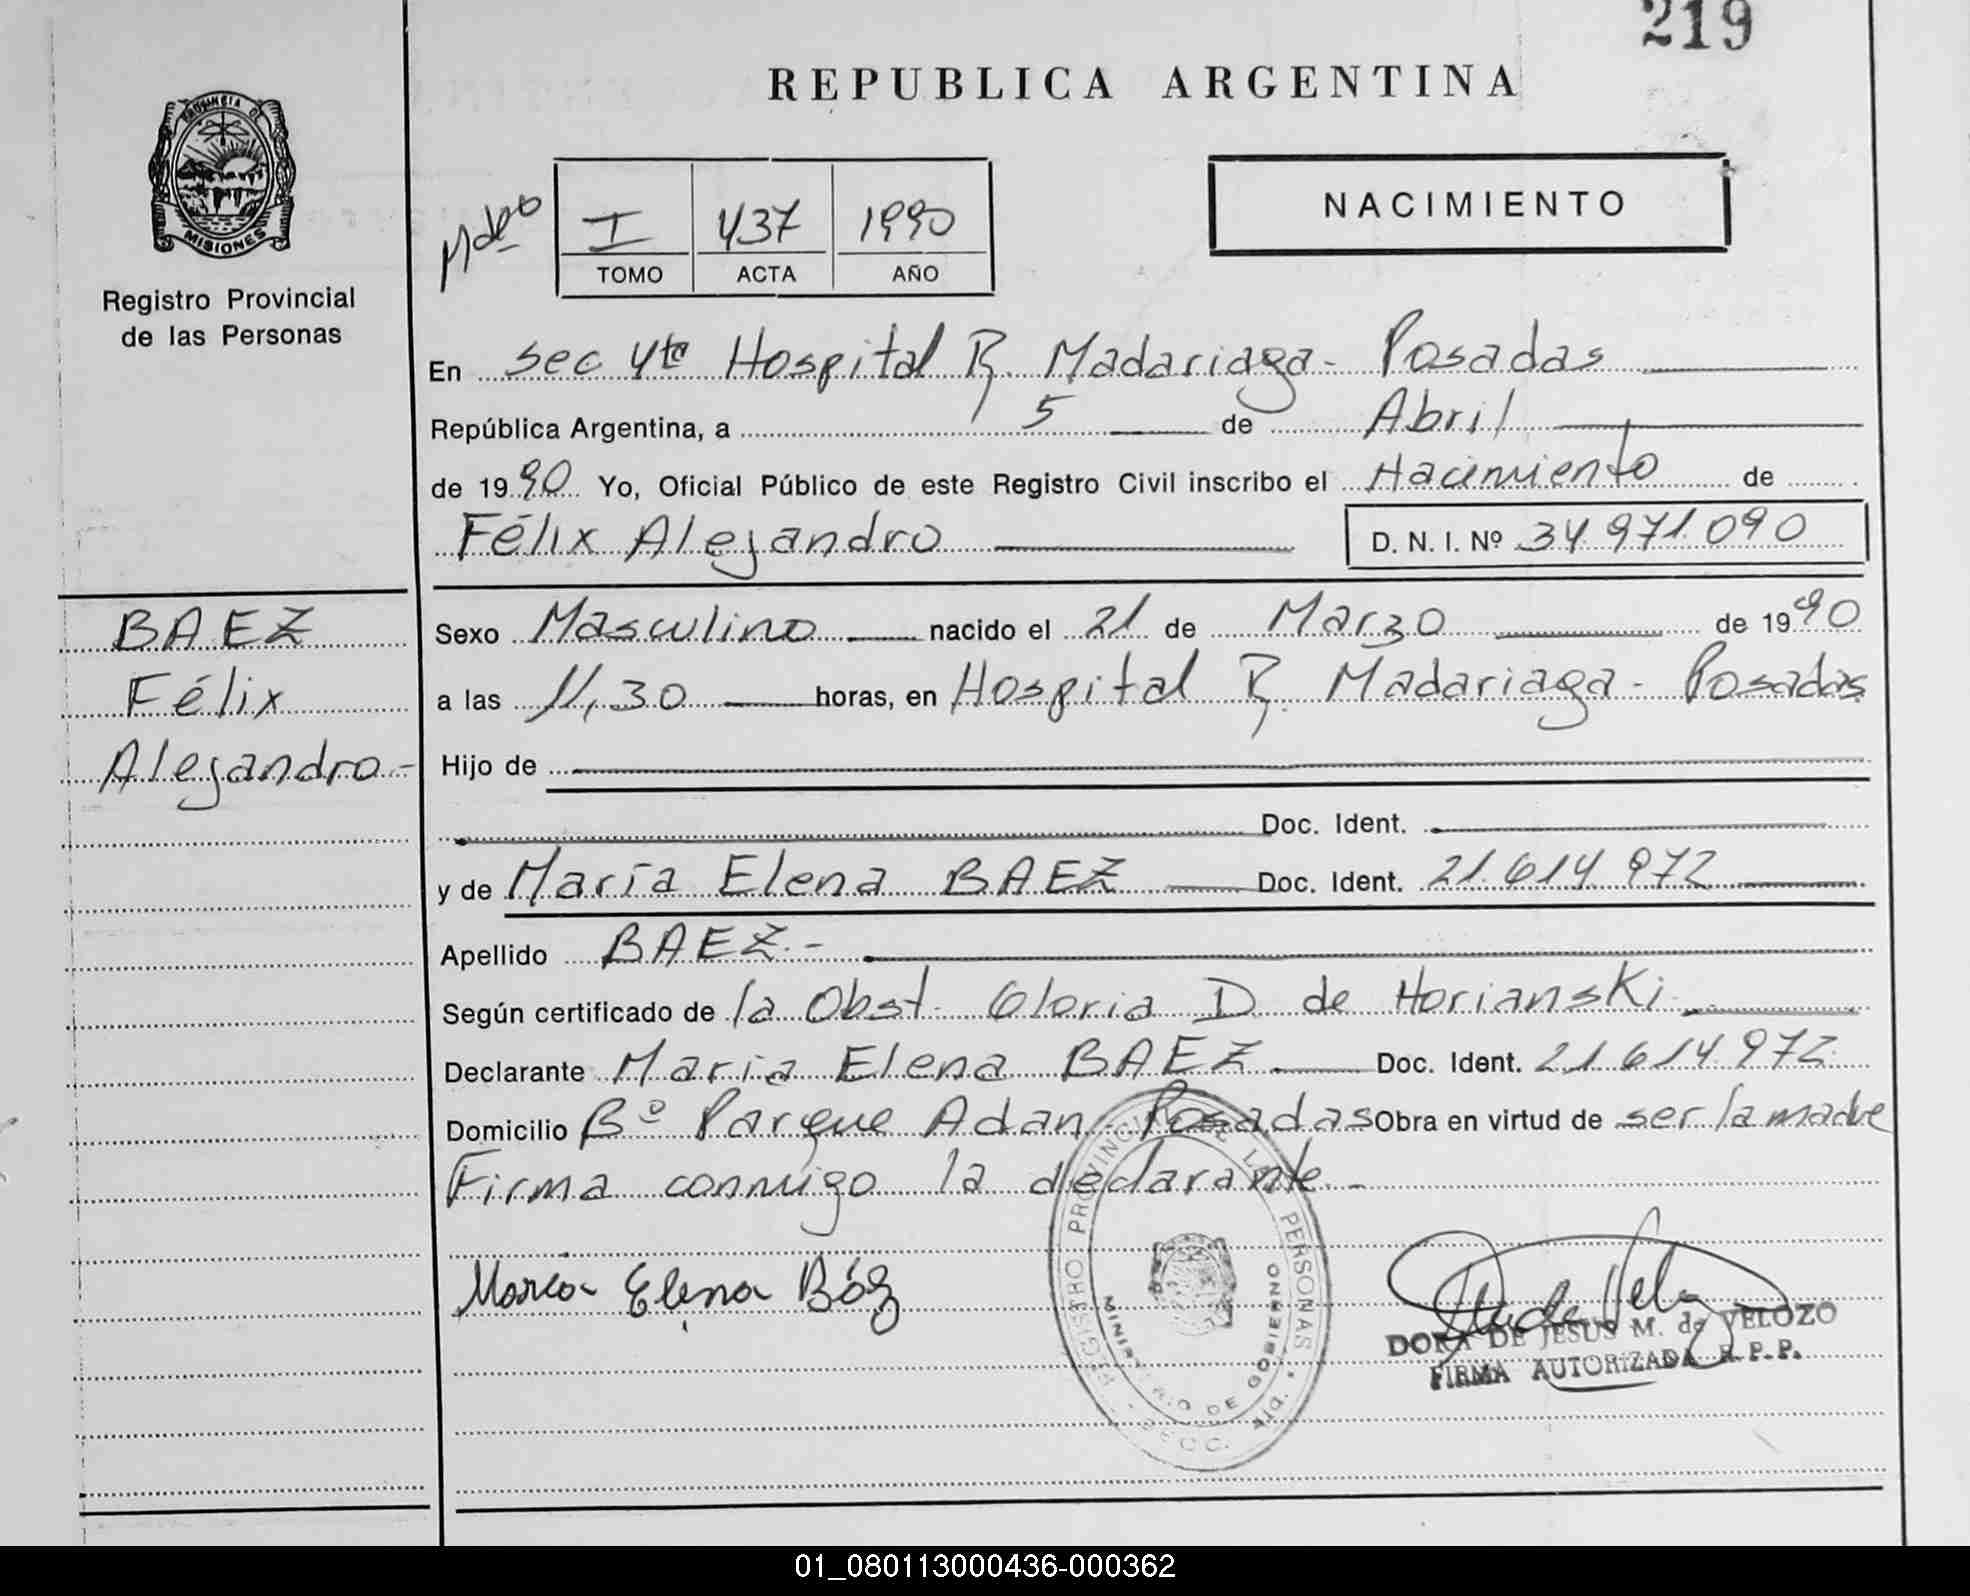 219
REPUBLICA ARGENTINA
PROVINCIA DE
MISIONES
Registro Provincial
de las Personas
I 437 1990
TOMO ACTA AÑO
NACIMIENTO
En Sec 4ta Hospital R. Madariaga - Posadas
República Argentina, a 5 de Abril
de 1990 Yo, Oficial Público de este Registro Civil inscribo el Nacimiento de
Félix Alejandro D. N. I. Nº 34.971.090
BAEZ
Félix
Alejandro.-
Sexo Masculino nacido el 21 de Marzo de 1990
a las 11,30 horas, en Hospital R. Madariaga - Posadas
Hijo de
Doc. Ident.
y de María Elena BAEZ Doc. Ident. 21.614.972
Apellido BAEZ.-
Según certificado de la Obst. Gloria D. de Horianski
Declarante María Elena BAEZ Doc. Ident. 21.614.972
Domicilio Bº Parque Adan - Posadas Obra en virtud de ser la madre
Firma conmigo la declarante.-
Maria Elena Báez
REGISTRO PROVINCIAL DE LAS PERSONAS
MINISTERIO DE GOBIERNO
SECC. 4ta.
DORA DE JESUS M. de VELOZO
FIRMA AUTORIZADA R.P.P.
01_080113000436-000362